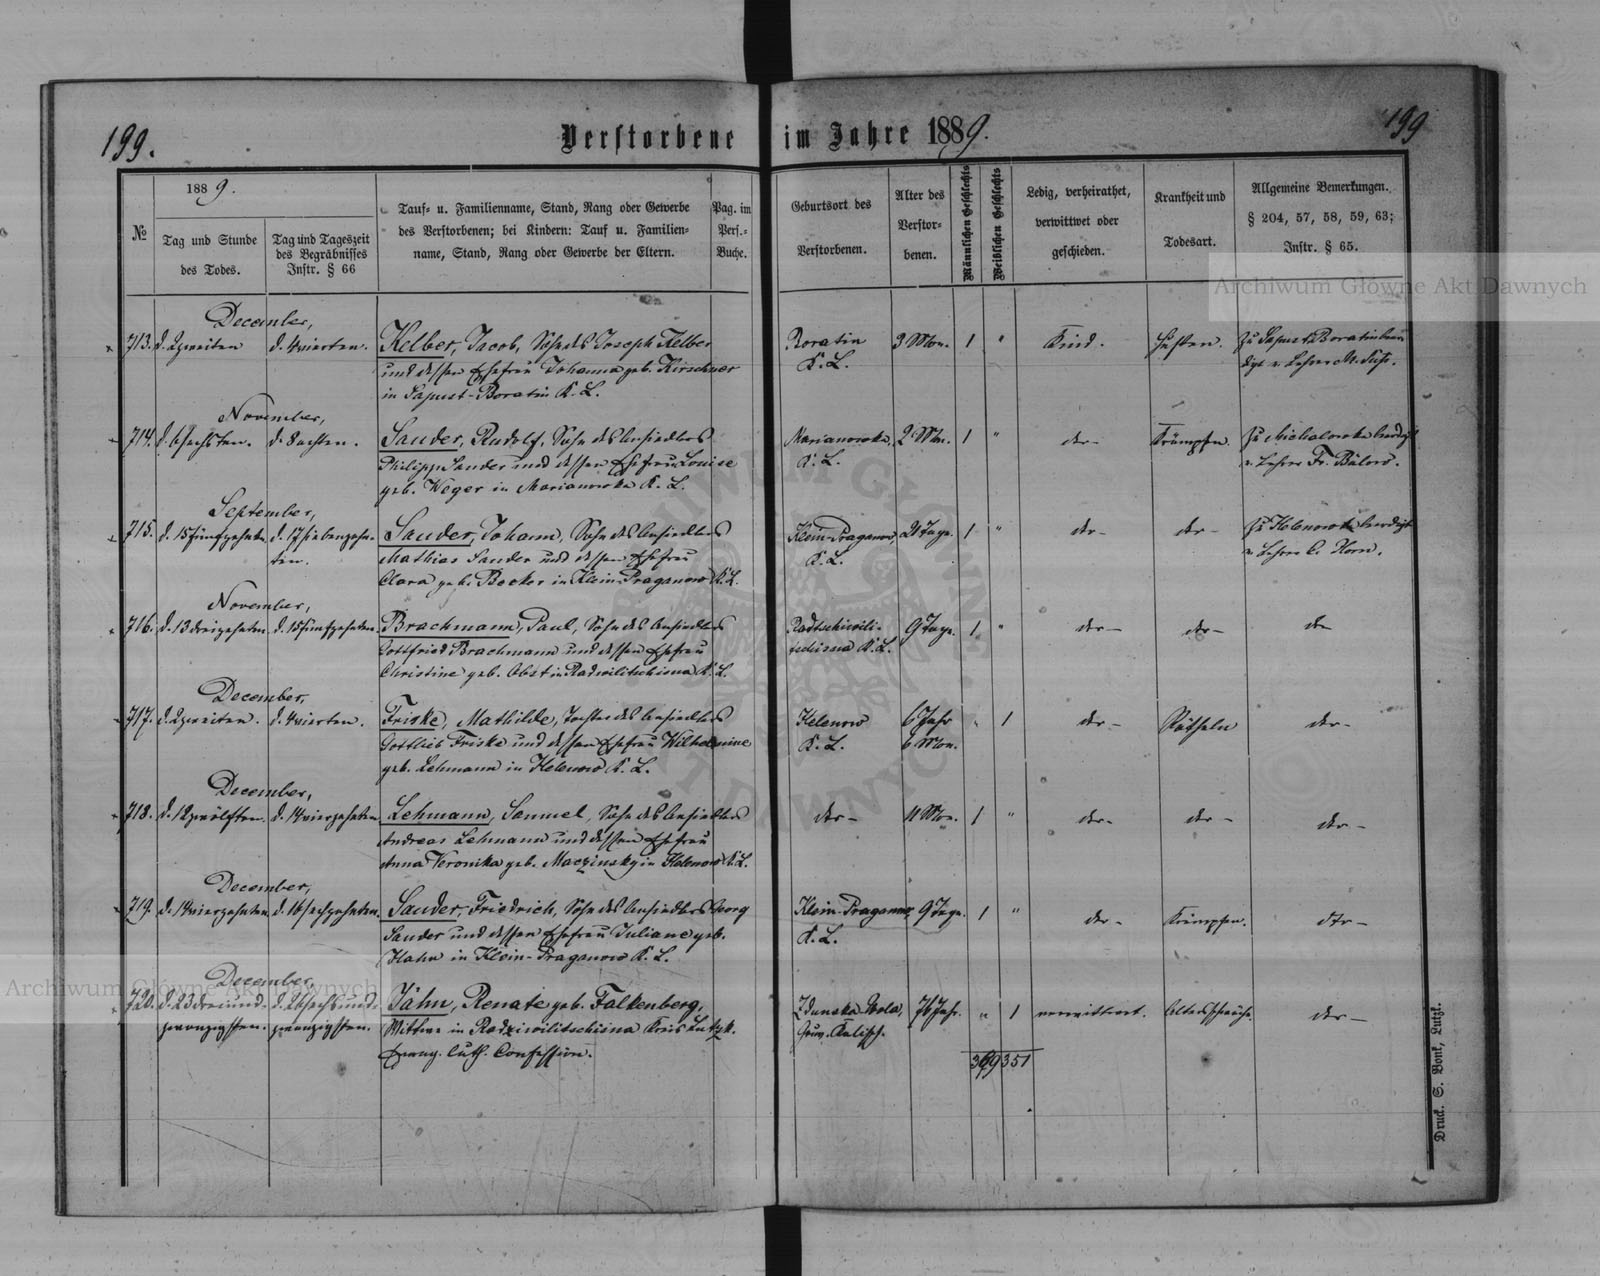 199.
Verstorbene im Jahre 1889.
199
№
1889.
Tag und Stunde
des Todes.
Tag und Tageszeit
des Begräbnisses
Instr. § 66
Tauf- u. Familienname, Stand, Rang oder Gewerbe
des Verstorbenen; bei Kindern: Tauf u. Familien-
name, Stand, Rang oder Gewerbe der Eltern.
Pag. im
Pers.-
Buche.
Geburtsort des
Verstorbenen.
Alter des
Verstor-
benen.
Männlichen Geschlechts
Weiblichen Geschlechts
Ledig, verheirathet,
verwittwet oder
geschieden.
Krankheit und
Todesart.
Allgemeine Bemerkungen.
§ 204, 57, 58, 59, 63;
Instr. § 65.
Archiwum Główne Akt Dawnych
December,
713. d. 2 zweiten d. 4 vierten. Kelber, Jacob, Sohn des Joseph Kelber
und dessen Ehefrau Johanna geb. Kirschner
in Sapust-Boratin K. L.
Boratin
K. L.
3 Mon. 1 " Kind. Husten.
Zu Sapust Boratin beer
digt v. Lehrer M.
November,
714. d. 6 sechsten. d. 8 achten. Sander, Rudolf, Sohn des Ansiedlers
Philipp Sander und dessen Ehefrau Louise
geb. Weger in Marianowka K. L.
Marianowka,
K. L.
2 Mon. 1 " der- Krämpfen.
Zu Michalowka beerdigt
v. Lehrer Fr. Bülow.
September,
715. d. 15 fünfzehnten d. 17 siebenzehn-
ten.
Sander, Johann, Sohn des Ansiedlers
Mathias Sander und dessen Ehefrau
Clara geb. Becker in Klein-Praganow K. L.
Klein-Praganow,
K. L.
21 Tage. 1 " der- der-
Zu Helenowka beerdigt
v. Lehrer C. Horn.
November,
716. d. 13 dreizehnten d. 15 fünfzehnten Brachmann, Paul, Sohn des Ansiedlers
Gottfried Brachmann und dessen Ehefrau
Christine geb. Obst in Radwilitschisna K. L.
Radtschiwili-
tschisna K. L.
9 Tage. 1 " der- der- der
December,
717. d. 2 zweiten. d. 4 vierten. Friske, Mathilde, Tochter des Ansiedlers
Gottlieb Friske und dessen Ehefrau Wilhelmine
geb. Lehmann in Helenow K. L.
Helenow
K. L.
6 Jahr
6 Mon.
" 1 der- Rötheln der-
December,
718. d. 12 zwölften. d. 14 vierzehnten Lehmann, Samuel, Sohn des Ansiedlers
Andreas Lehmann und dessen Ehefrau
Anna Veronika geb. Maczinsky in Helenow K. L.
der- 11 Mon. 1 " der- der- der-
December,
719. d. 14 vierzehnten d. 16 sechzehnten. Sander, Friedrich, Sohn des Ansiedlers Georg
Sander und dessen Ehefrau Juliane geb.
Hahn in Klein-Praganow K. L.
Klein-Praganow
K. L.
9 Tage. 1 " der- Krämpfen. der-
December,
720. d. 23 dreiund-
zwanzigsten.
d. 26 sechsund-
zwanzigsten.
Jahn, Renate geb. Falkenberg,
Wittwe in Radziwilitschisna Kreis Lutzk.
Evang. Luth. Confession.
Zdunska Wola,
Gouv. Kalisch.
76 Jahr. " 1 verwittwet. Altersschwäche. der-
369 351
Archiwum Główne Akt Dawnych
Druck. S. Bonk, Lutzk.
ARCHIWUM GŁÓWNE AKT DAWNYCH